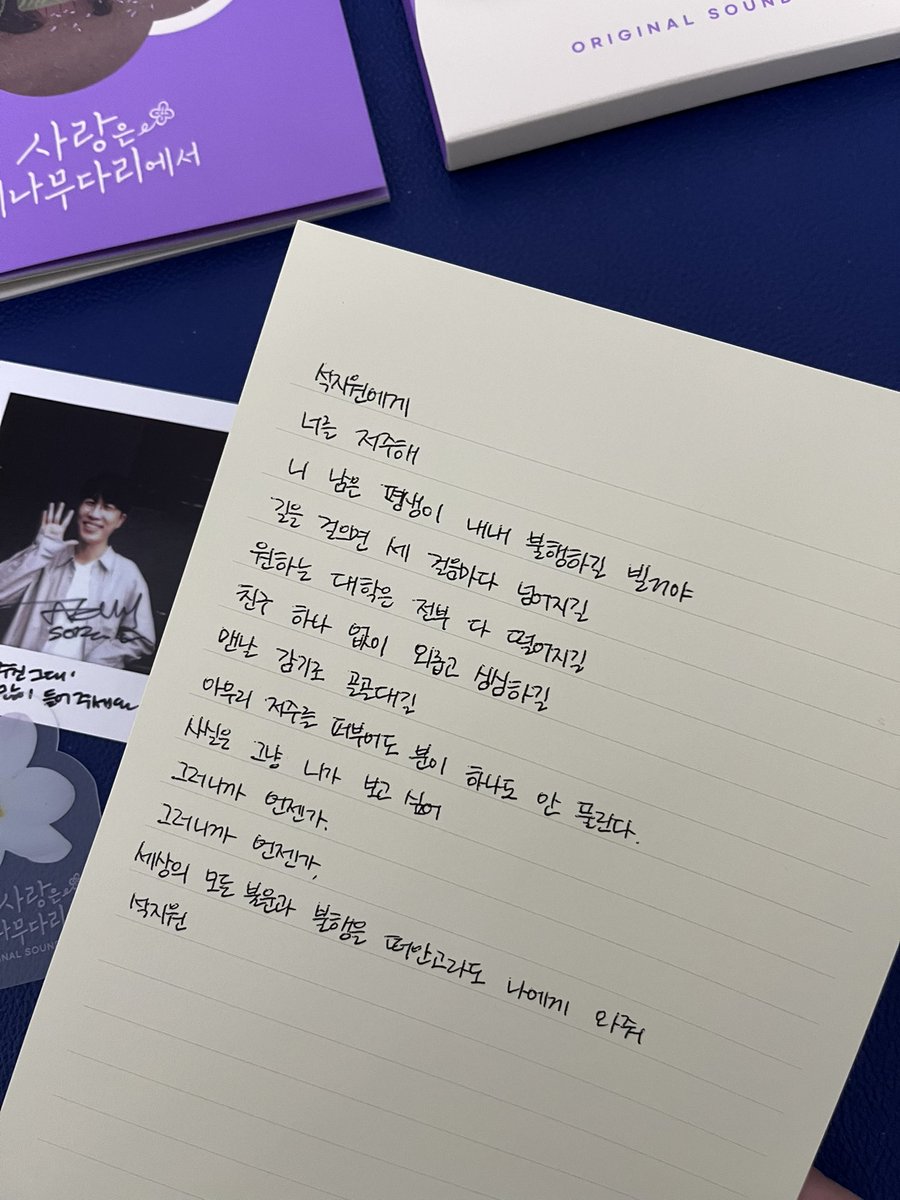 ORIGINAL SOUND
사랑은
나무다리에서
석지원에게
너를 저주해
니 남은 평생이 내내 불행하길 빌거야
길을 걸으면 세 걸음마다 넘어지길
원하는 대학은 전부 다 떨어지길
친구 하나 없이 외롭고 심심하길
맨날 감기로 골골대길
아무리 저주를 퍼부어도 분이 하나도 안 풀린다.
사실은 그냥 니가 보고 싶어
그러니까 언젠가.
그러니까 언젠가,
세상의 모든 불운과 불행을 떠안고라도 나에게 와줘
석지원
그대'
많이 들어주세요
사랑은
나무다리
NAL SOUN